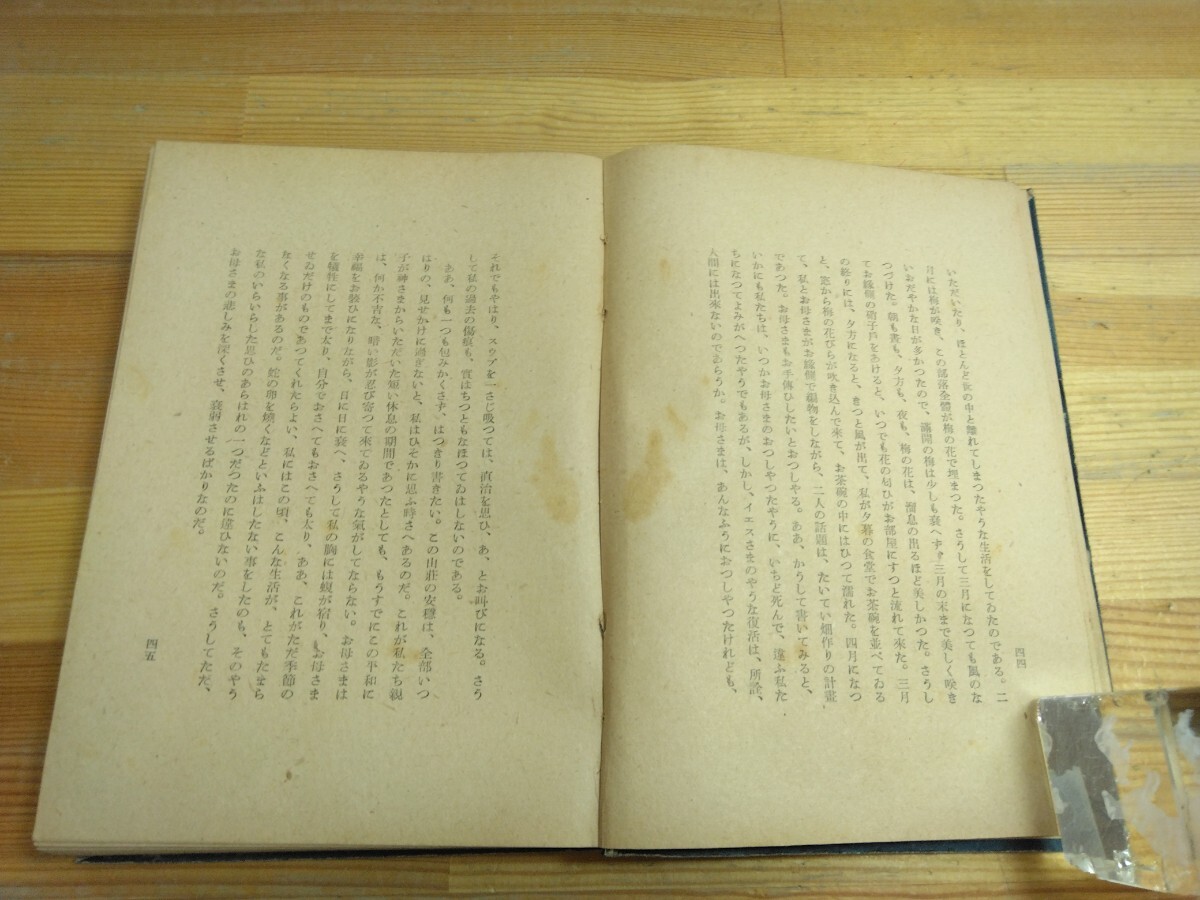 四四
いただいたり、ほとんど世の中と離れてしまつたやうな生活をしてゐたのである。二
月には梅が咲き、この部落全體が梅の花で埋まつた。さうして三月になつても風のな
いおだやかな日が多かつたので、滿開の梅は少しも衰へず、三月の末まで美しく咲き
つづけた。朝も晝も、夕方も、夜も、梅の花は、溜息の出るほど美しかつた。さうし
てお緣側の硝子戶をあけると、いつでも花の匂ひがお部屋にすつと流れて來た。三月
の終りには、夕方になると、きつと風が出て、私が夕暮の食堂でお茶碗を並べてゐる
と、窓から梅の花びらが吹き込んで來て、お茶碗の中にはひつて濡れた。四月になつ
て、私とお母さまがお緣側で編物をしながら、二人の話題は、たいてい畑作りの計畫
であつた。お母さまもお手傳ひしたいとおつしやる。ああ、かうして書いてみると、
いかにも私たちは、いつかお母さまのおつしやつたやうに、いちど死んで、違ふ私た
ちになつてよみがへつたやうでもあるが、しかし、イエスさまのやうな復活は、所詮、
人間には出來ないのであらうか。お母さまは、あんなふうにおつしやつたけれども、
それでもやはり、スウプを一さじ吸つては、直治を思ひ、あ、とお叫びになる。さう
して私の過去の傷痕も、實はちつともなほつてゐはしないのである。
ああ、何も一つも包みかくさず、はつきり書きたい。この山莊の安穩は、全部いつ
はりの、見せかけに過ぎないと、私はひそかに思ふ時さへあるのだ。これが私たち親
子が神さまからいただいた短い休息の期間であつたとしても、もうすでにこの平和に
は、何か不吉な、暗い影が忍び寄つて來てゐるやうな氣がしてならない。お母さまは
幸福をお裝ひになりながら、日に日に衰へ、さうして私の胸には蝮が宿り、お母さま
を犧牲にしてまで太り、自分でおさへてもおさへても太り、ああ、これがただ季節の
せゐだけのものであつてくれたらよい、私にはこの頃、こんな生活が、とてもたまら
なくなる事があるのだ。蛇の卵を燒くなどといふはしたない事をしたのも、そのやう
な私のいらいらした思ひのあらはれの一つだつたのに違ひないのだ。さうしてただ、
お母さまの悲しみを深くさせ、衰弱させるばかりなのだ。
四五